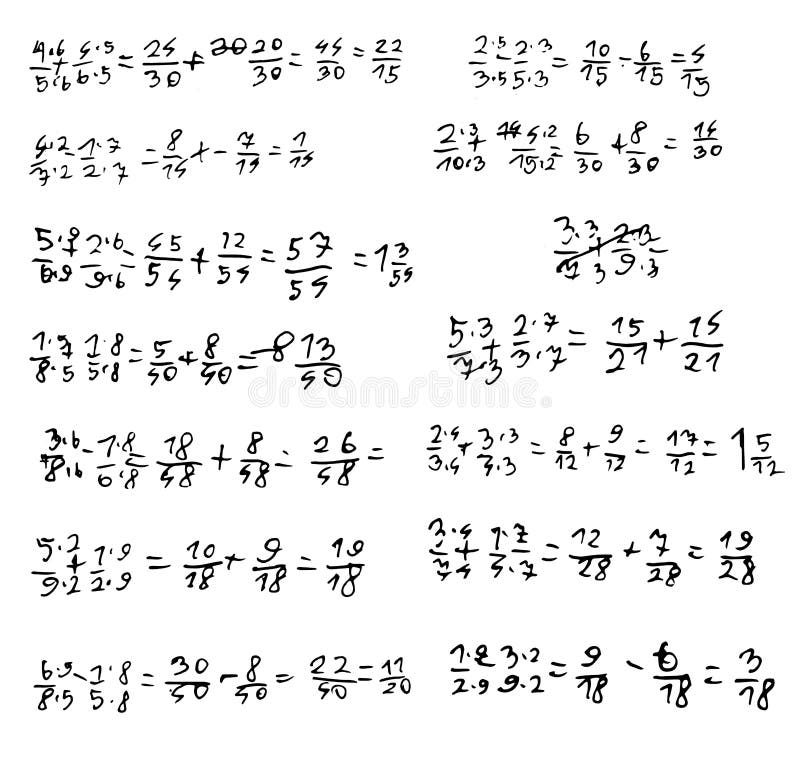 4·6/5·6 + 4·5/6·5 = 24/30 + 20/30 = 44/30 = 22/15
2·5/3·5 - 2·3/5·3 = 10/15 - 6/15 = 4/15
4·2/7·2 - 1·7/2·7 = 8/14 + - 7/14 = 1/14
2·3/10·3 + 4·2/15·2 = 6/30 + 8/30 = 14/30
5·9/6·9 + 2·6/9·6 = 45/54 + 12/54 = 57/54 = 1 3/54
3·3/7·3 + 2·3/9·3 =
1·5/8·5 + 1·8/5·8 = 5/40 + 8/40 = 13/40
5·3/7·3 + 2·7/3·7 = 15/21 + 14/21
dreamstime
3·6/8·6 - 1·8/6·8 = 18/48 + 8/48 = 26/48 =
2·4/3·4 + 3·3/4·3 = 8/12 + 9/12 = 17/12 = 1 5/12
5·2/9·2 + 1·9/2·9 = 10/18 + 9/18 = 19/18
3·4/7·4 + 1·7/4·7 = 12/28 + 7/28 = 19/28
6·5/8·5 - 1·8/5·8 = 30/40 - 8/40 = 22/40 = 11/20
1·9/2·9 3·2/9·2 = 9/18 - 6/18 = 3/18